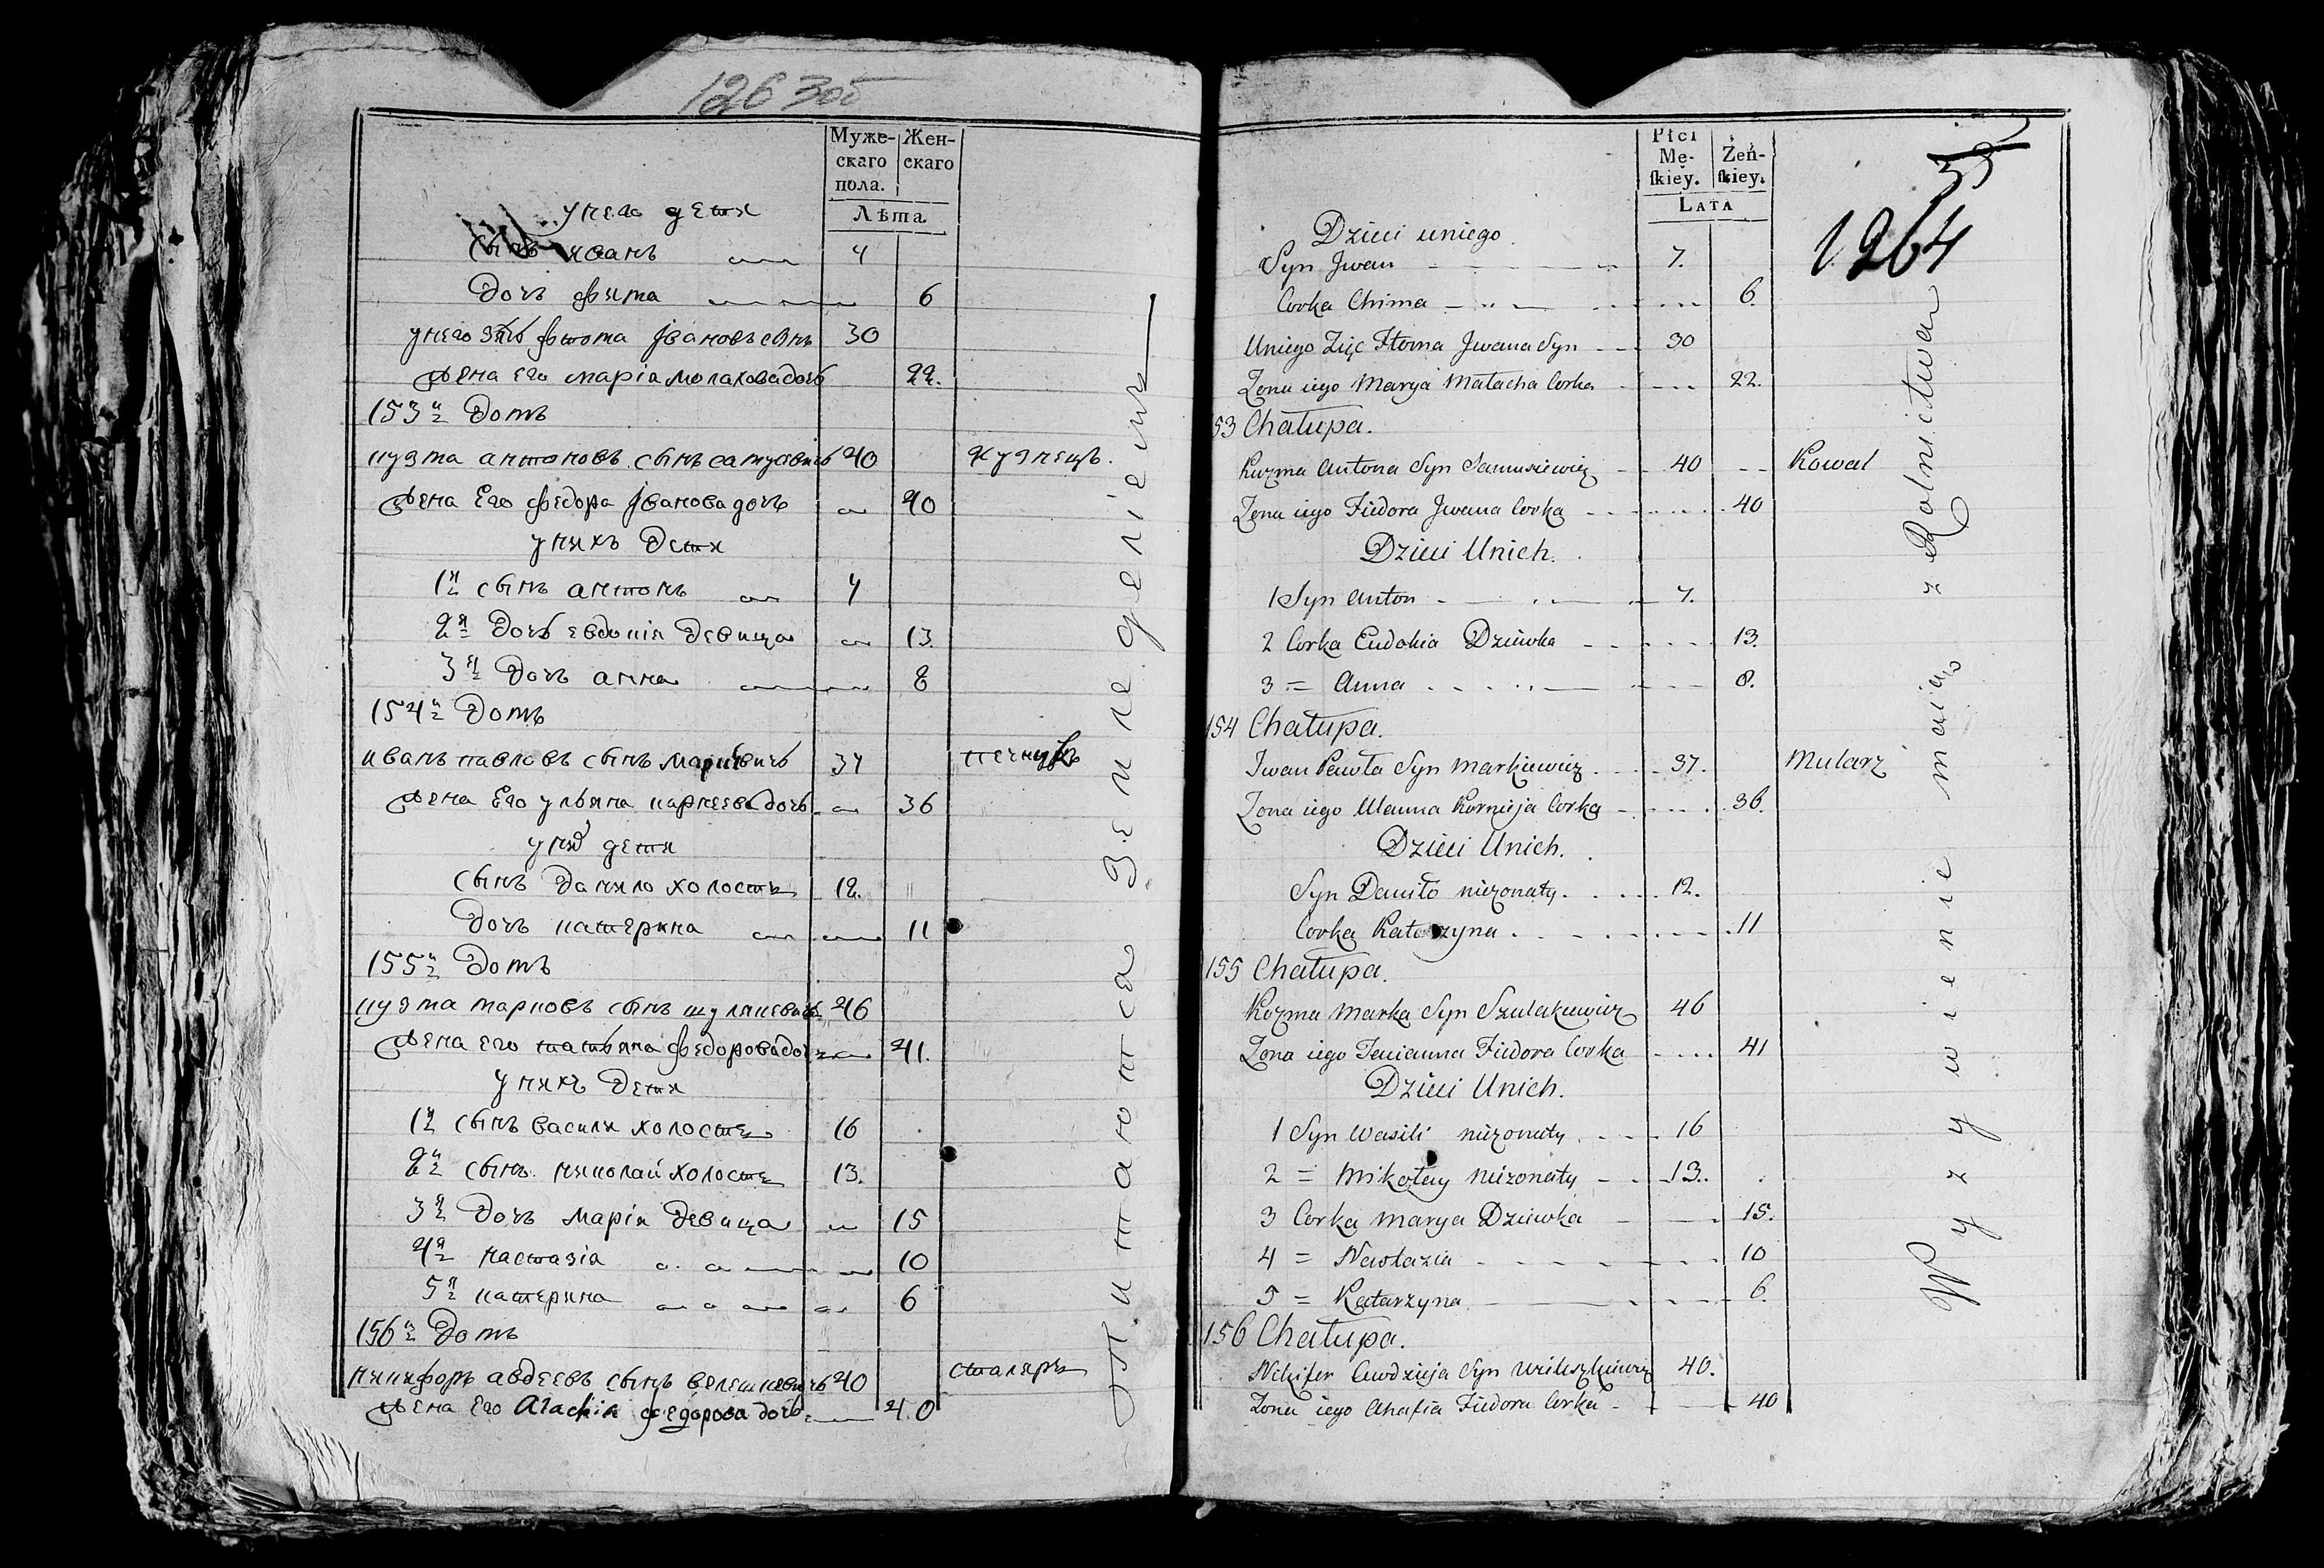 1263об
Муже-
скаго
пола.
Жен-
скаго
Лѣта
унего дети
сынъ иванъ 7
дочъ фима 6
унего зять фтома Ивановъ сынъ 30
жена Его марія малахова дочь 22.
153й домъ
кузма антоновъ сынъ самусевичь 40 кузнецъ.
жена Его федора Иванова дочъ 40
унихъ дети
1й сынъ антонъ 7
2я дочь евдокія девица 13.
3я дочъ анна 8
154й домъ
иванъ павловъ сынъ маркевичь 37 печникъ
жена Его ульяна карнеева дочь 36
унихъ дети
сынъ данило холостъ 12.
дочъ катерина 11
155й домъ
кузма марковъ сынъ шулякевичь 46
жена его татьяна федорова дочь 41.
унихъ дети
1й сынъ василий холостъ 16
2й сынъ николай холостъ 13.
3я дочъ марія девица 15
4я настазія 10
5я катерина 6
156й домъ
никифоръ авдеевъ сынъ велешкевичь 40 сталяръ
жена Его Агафія федорова дочь 40
питаются земледеліемъ
Płci
Mę-
ſkiey.
Żeń-
ſkiey.
Lata
1264
Dzieci uniego
Syn Jwan 7.
Corka Chima 6.
Uniego Zięc Htoma Jwana Syn 30
Zona iego Marya Małacha Corka 22.
153 Chałupa.
Kuzma Antona Syn Samusiewicz 40 Kowal
Zona iego Fiedora Jwana Corka 40
Dzieci Unich.
1 Syn Anton 7.
2 Corka Eudokia Dziewka 13.
3 = Anna 8.
154 Chałupa.
Jwan Pawła Syn Markiewicz 37. Mularz
Zona iego Ulanna Kornieja Corka 36.
Dzieci Unich.
Syn Daniło niezonaty 12.
Corka Katarzyna 11
155 Chałupa.
Kuzma Marka Syn Szulakiewicz 46
Zona iego Tacianna Fiedora Corka 41
Dzieci Unich.
1 Syn Wasili niezonaty 16
2 = Mikołay niezonaty 13.
3 Corka Marya Dziewka 15.
4 = Nastazia 10
5 = Katarzyna 6.
156 Chałupa.
Nikifer Awdzieja Syn Wieleszkiewicz 40.
Zona iego Ahafia Fiedora Corka 40
Wyzywienie maią z Rolnictwa